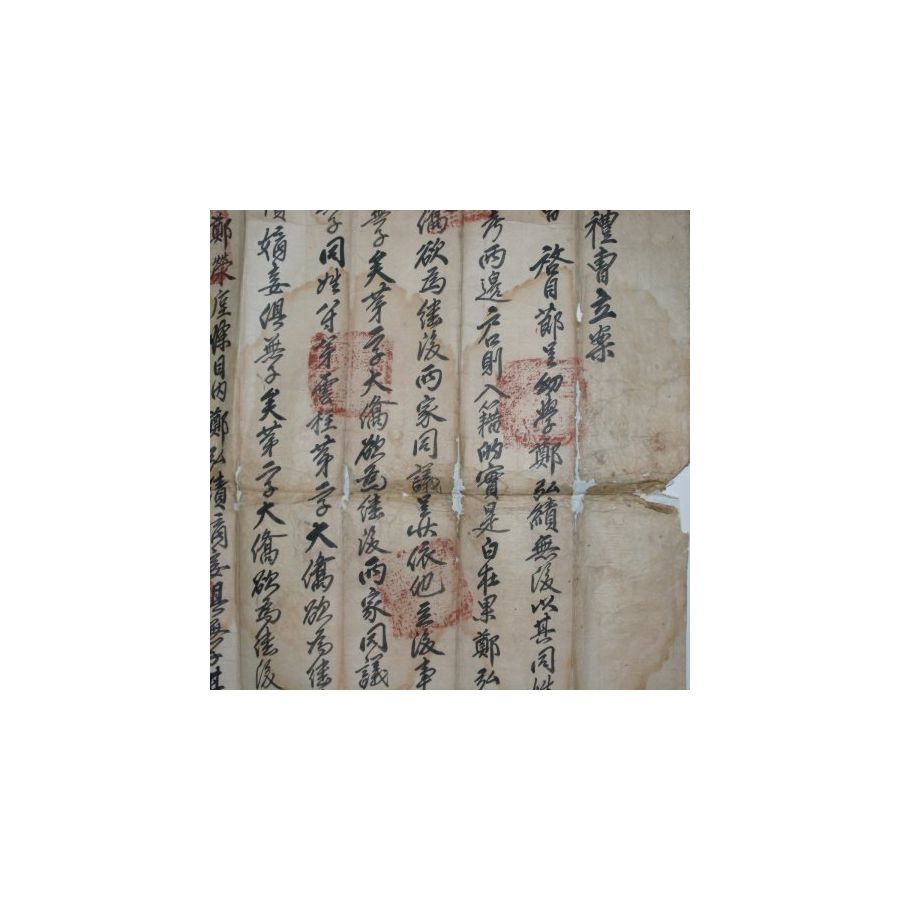 禮曹立案
啓目節呈幼學鄭弘績無後以其同姓
考兩邊戶口則入籍的實是白在果鄭弘
僑欲爲繼後兩家同議呈狀依他立後事
無子矣第二子大僑欲爲繼後兩家同議
同姓 弟雲柱第二子大僑欲爲繼
嫡妾俱無子矣第二子大僑欲爲繼後
鄭榮 條目內鄭弘績嫡妾俱無子其